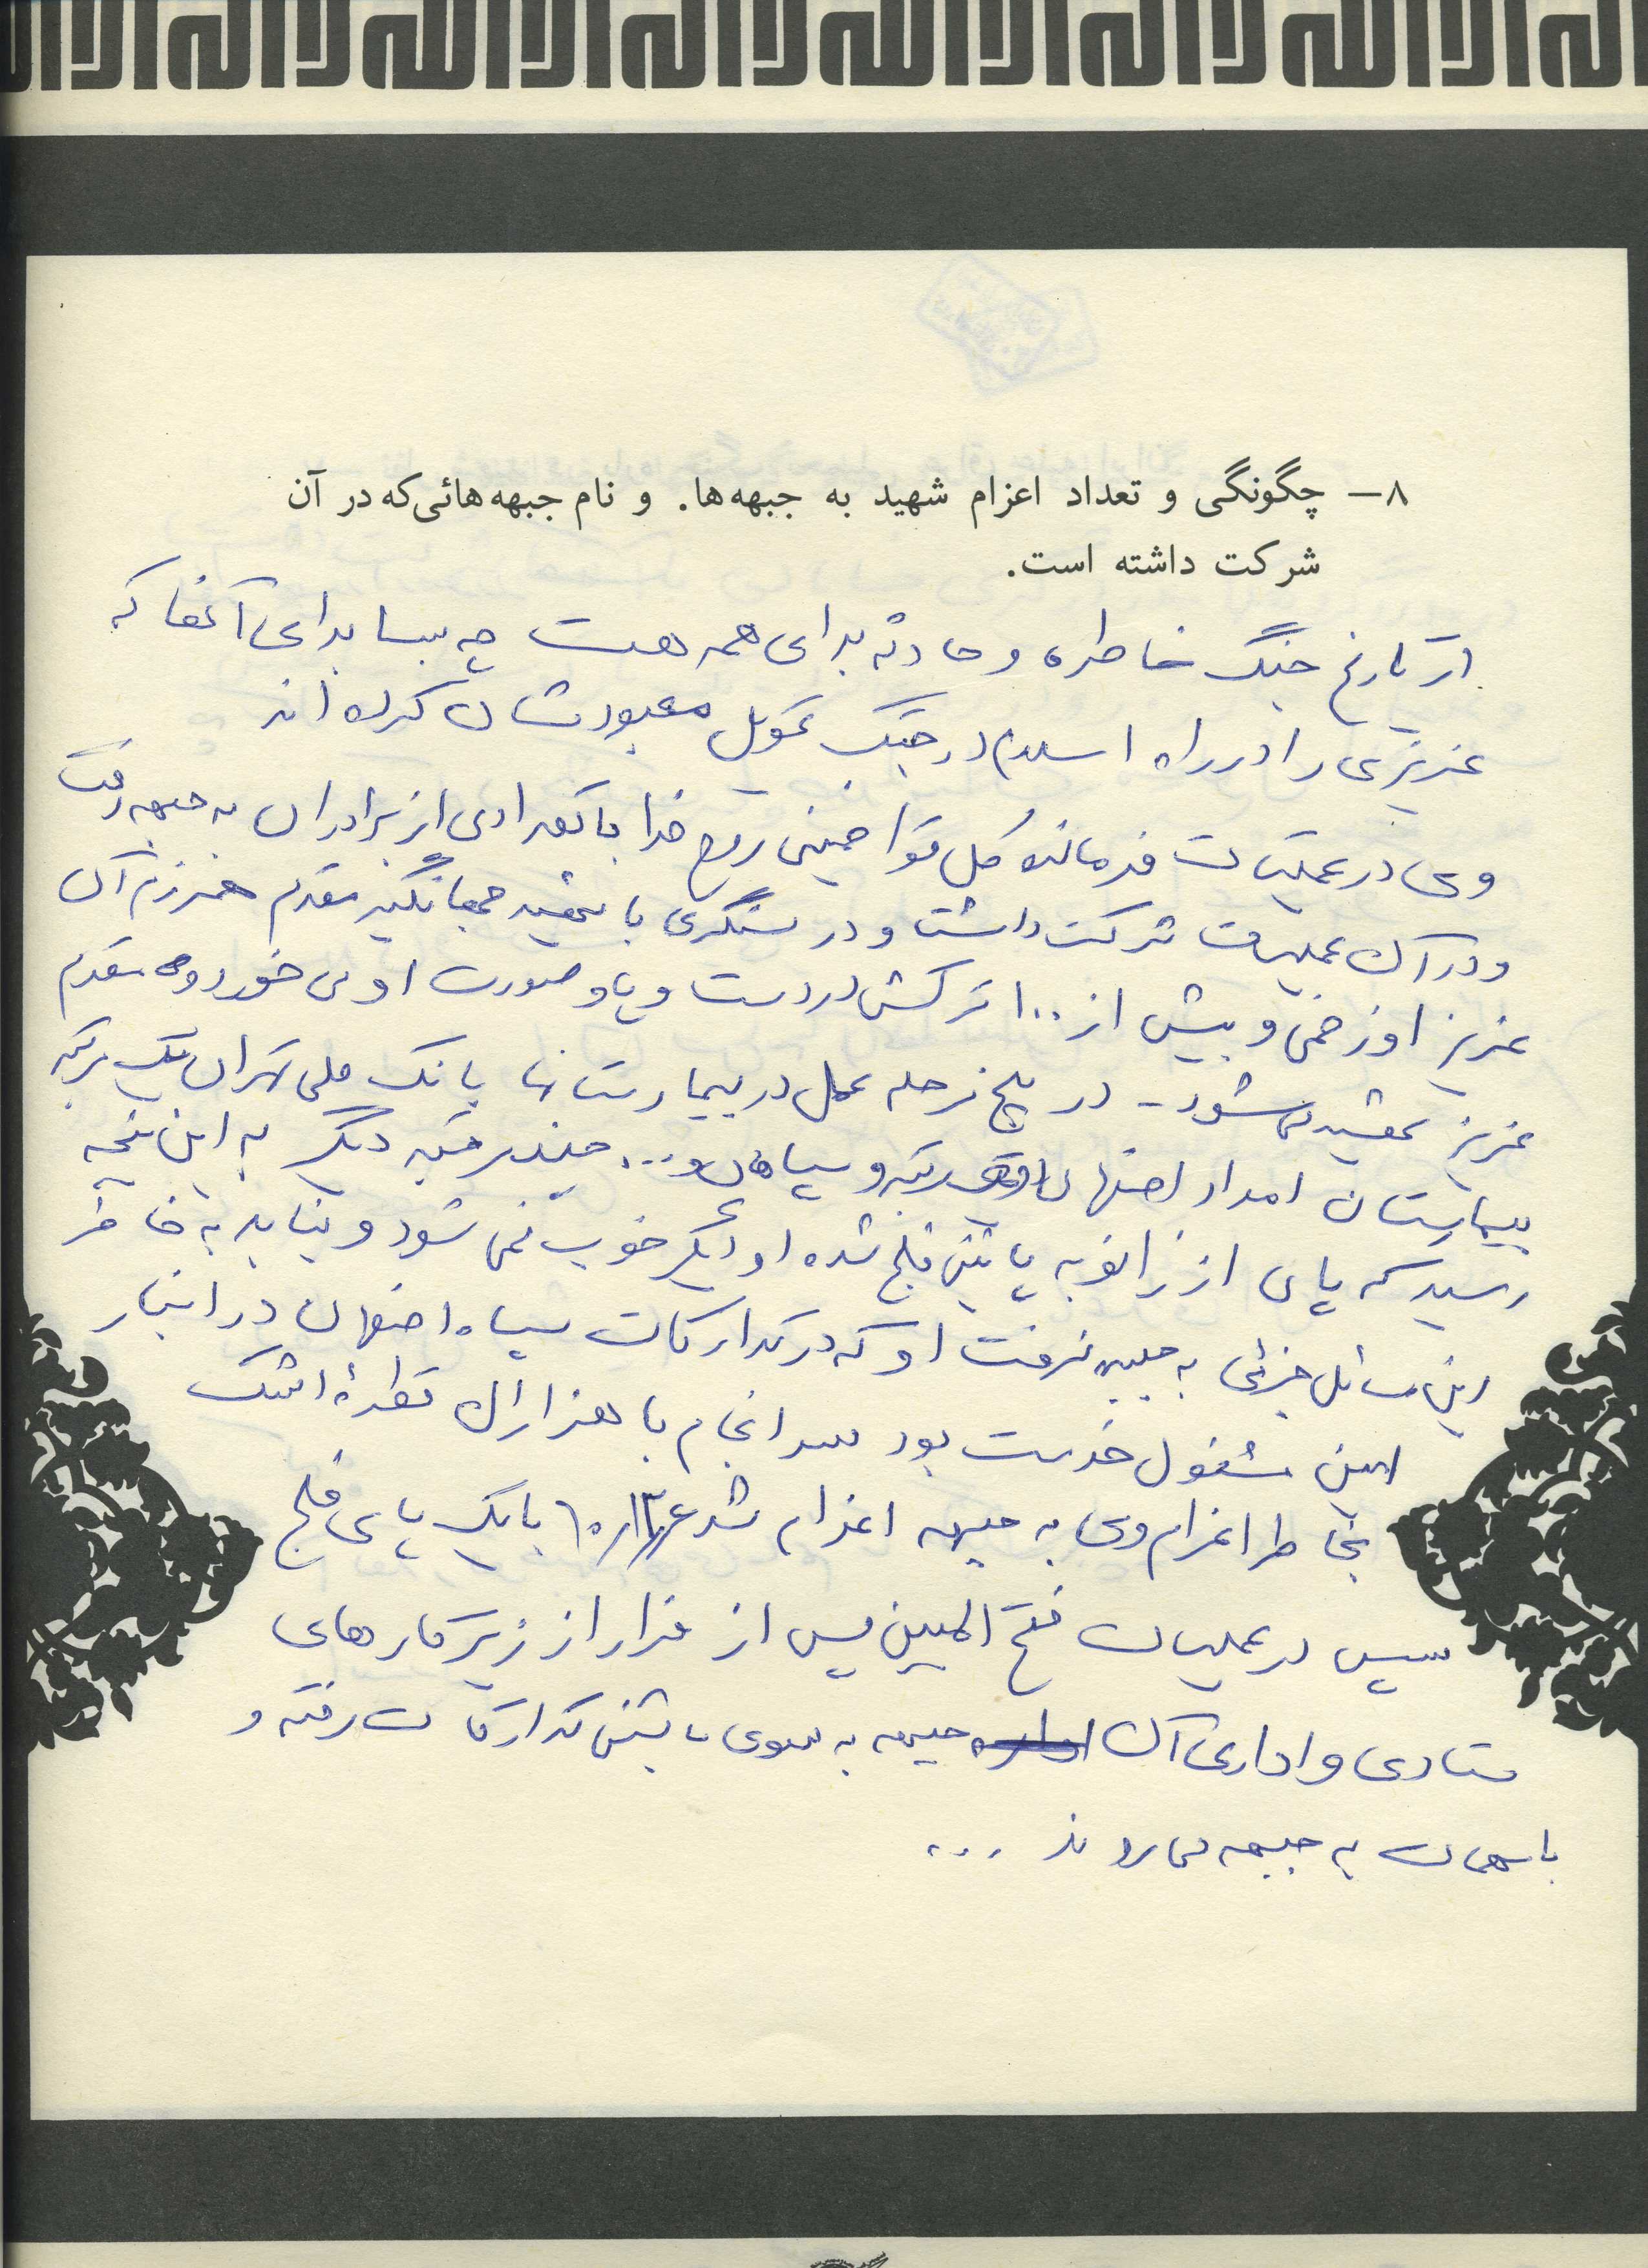 لا اله الا الله لا اله الا الله لا اله الا الله لا اله
۸– چگونگی و تعداد اعزام شهید به جبهه‌ها. و نام جبهه‌هائی که در آن
شرکت داشته است.
از تاریخ جنگ خاطره و حادثه برای همه هست چه بسا برای آنها که
عزیزی را در راه اسلام در جنگ تحویل معبودشان کرده اند
وی در عملیات فرمانده کل قوا خمینی روح خدا با تعدادی از برادران به جبهه رفت
و در آن عملیات شرکت داشت و در سنگری با شهید جهانگیر مقدم همرزم آن
عزیز او زخمی و بیش از ۱۰۰ ترکش در دست و پا و صورت او می خورد و مقدم
عزیز شهید می شود - در پنج مرحله عمل در بیمارستانها بانک ملی تهران یک مرتبه
بیمارستان امداد اصفهان مرتبه و سپاهان و... چند مرتبه دیگر به این نتیجه
رسید که پای از زانو به پائین فلج شده او دیگر خوب نمی شود و نباید به خاطر
این مسائل جزئی به جبهه نرفت او که در تدارکات سپاه اصفهان در انبار
مشغول خدمت بود سرانجام با هزاران قطرهٔ اشک
بخاطر اعزام وی به جبهه اعزام شد با یک پای فلج
سپس در عملیات فتح المبین پس از فرار از زیر کارهای
ستادی و اداری آن جبهه به سوی تدارکات رفته و
با مهمات به جبهه می روند ...